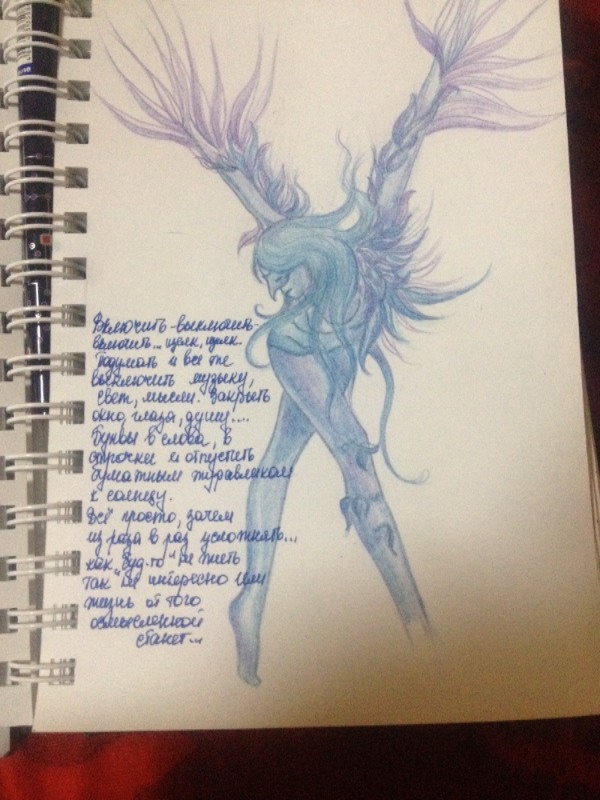 Включить-выключить-
включить... щелк, щелк.
Подумать и все же
выключить музыку,
свет, мысли. Закрыть
окно, глаза, душу....
Буквы в слова, в
строчки и отпустить
бумажным журавликом
к солнцу.
Всё просто, зачем
из раза в раз усложнять...
как буд-то не жить
так не интересно или
жизнь от того
осмысленной
станет...